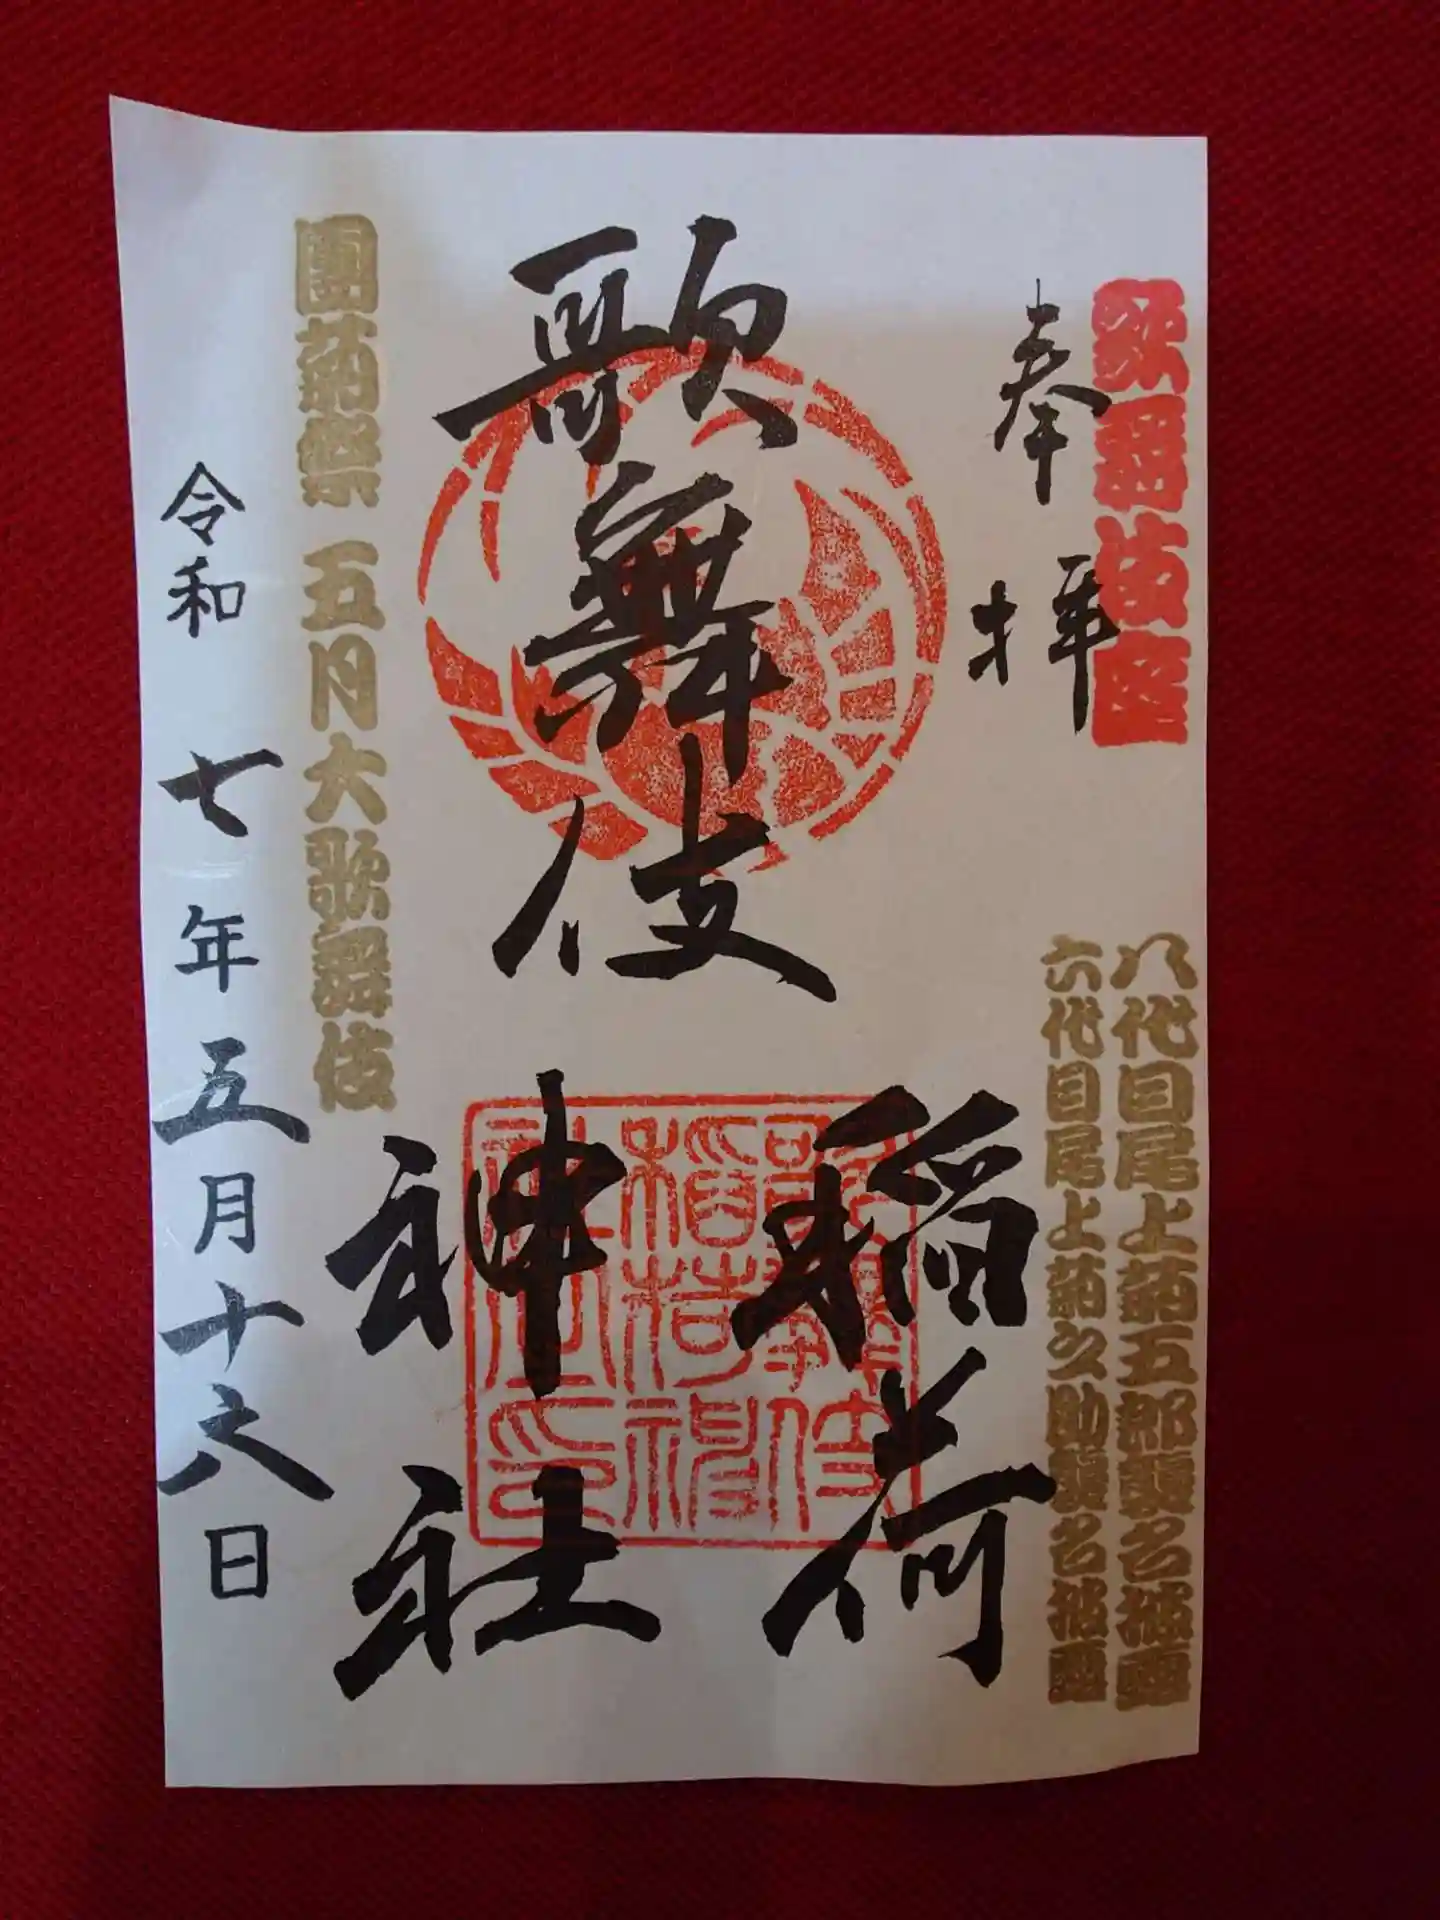 歌舞伎座
奉拝
八代目尾上菊五郎襲名披露
六代目尾上菊之助襲名披露
歌舞伎
稲荷
神社
歌舞伎
稲荷神
社之印
團菊祭 五月大歌舞伎
令和 七年五月十六日